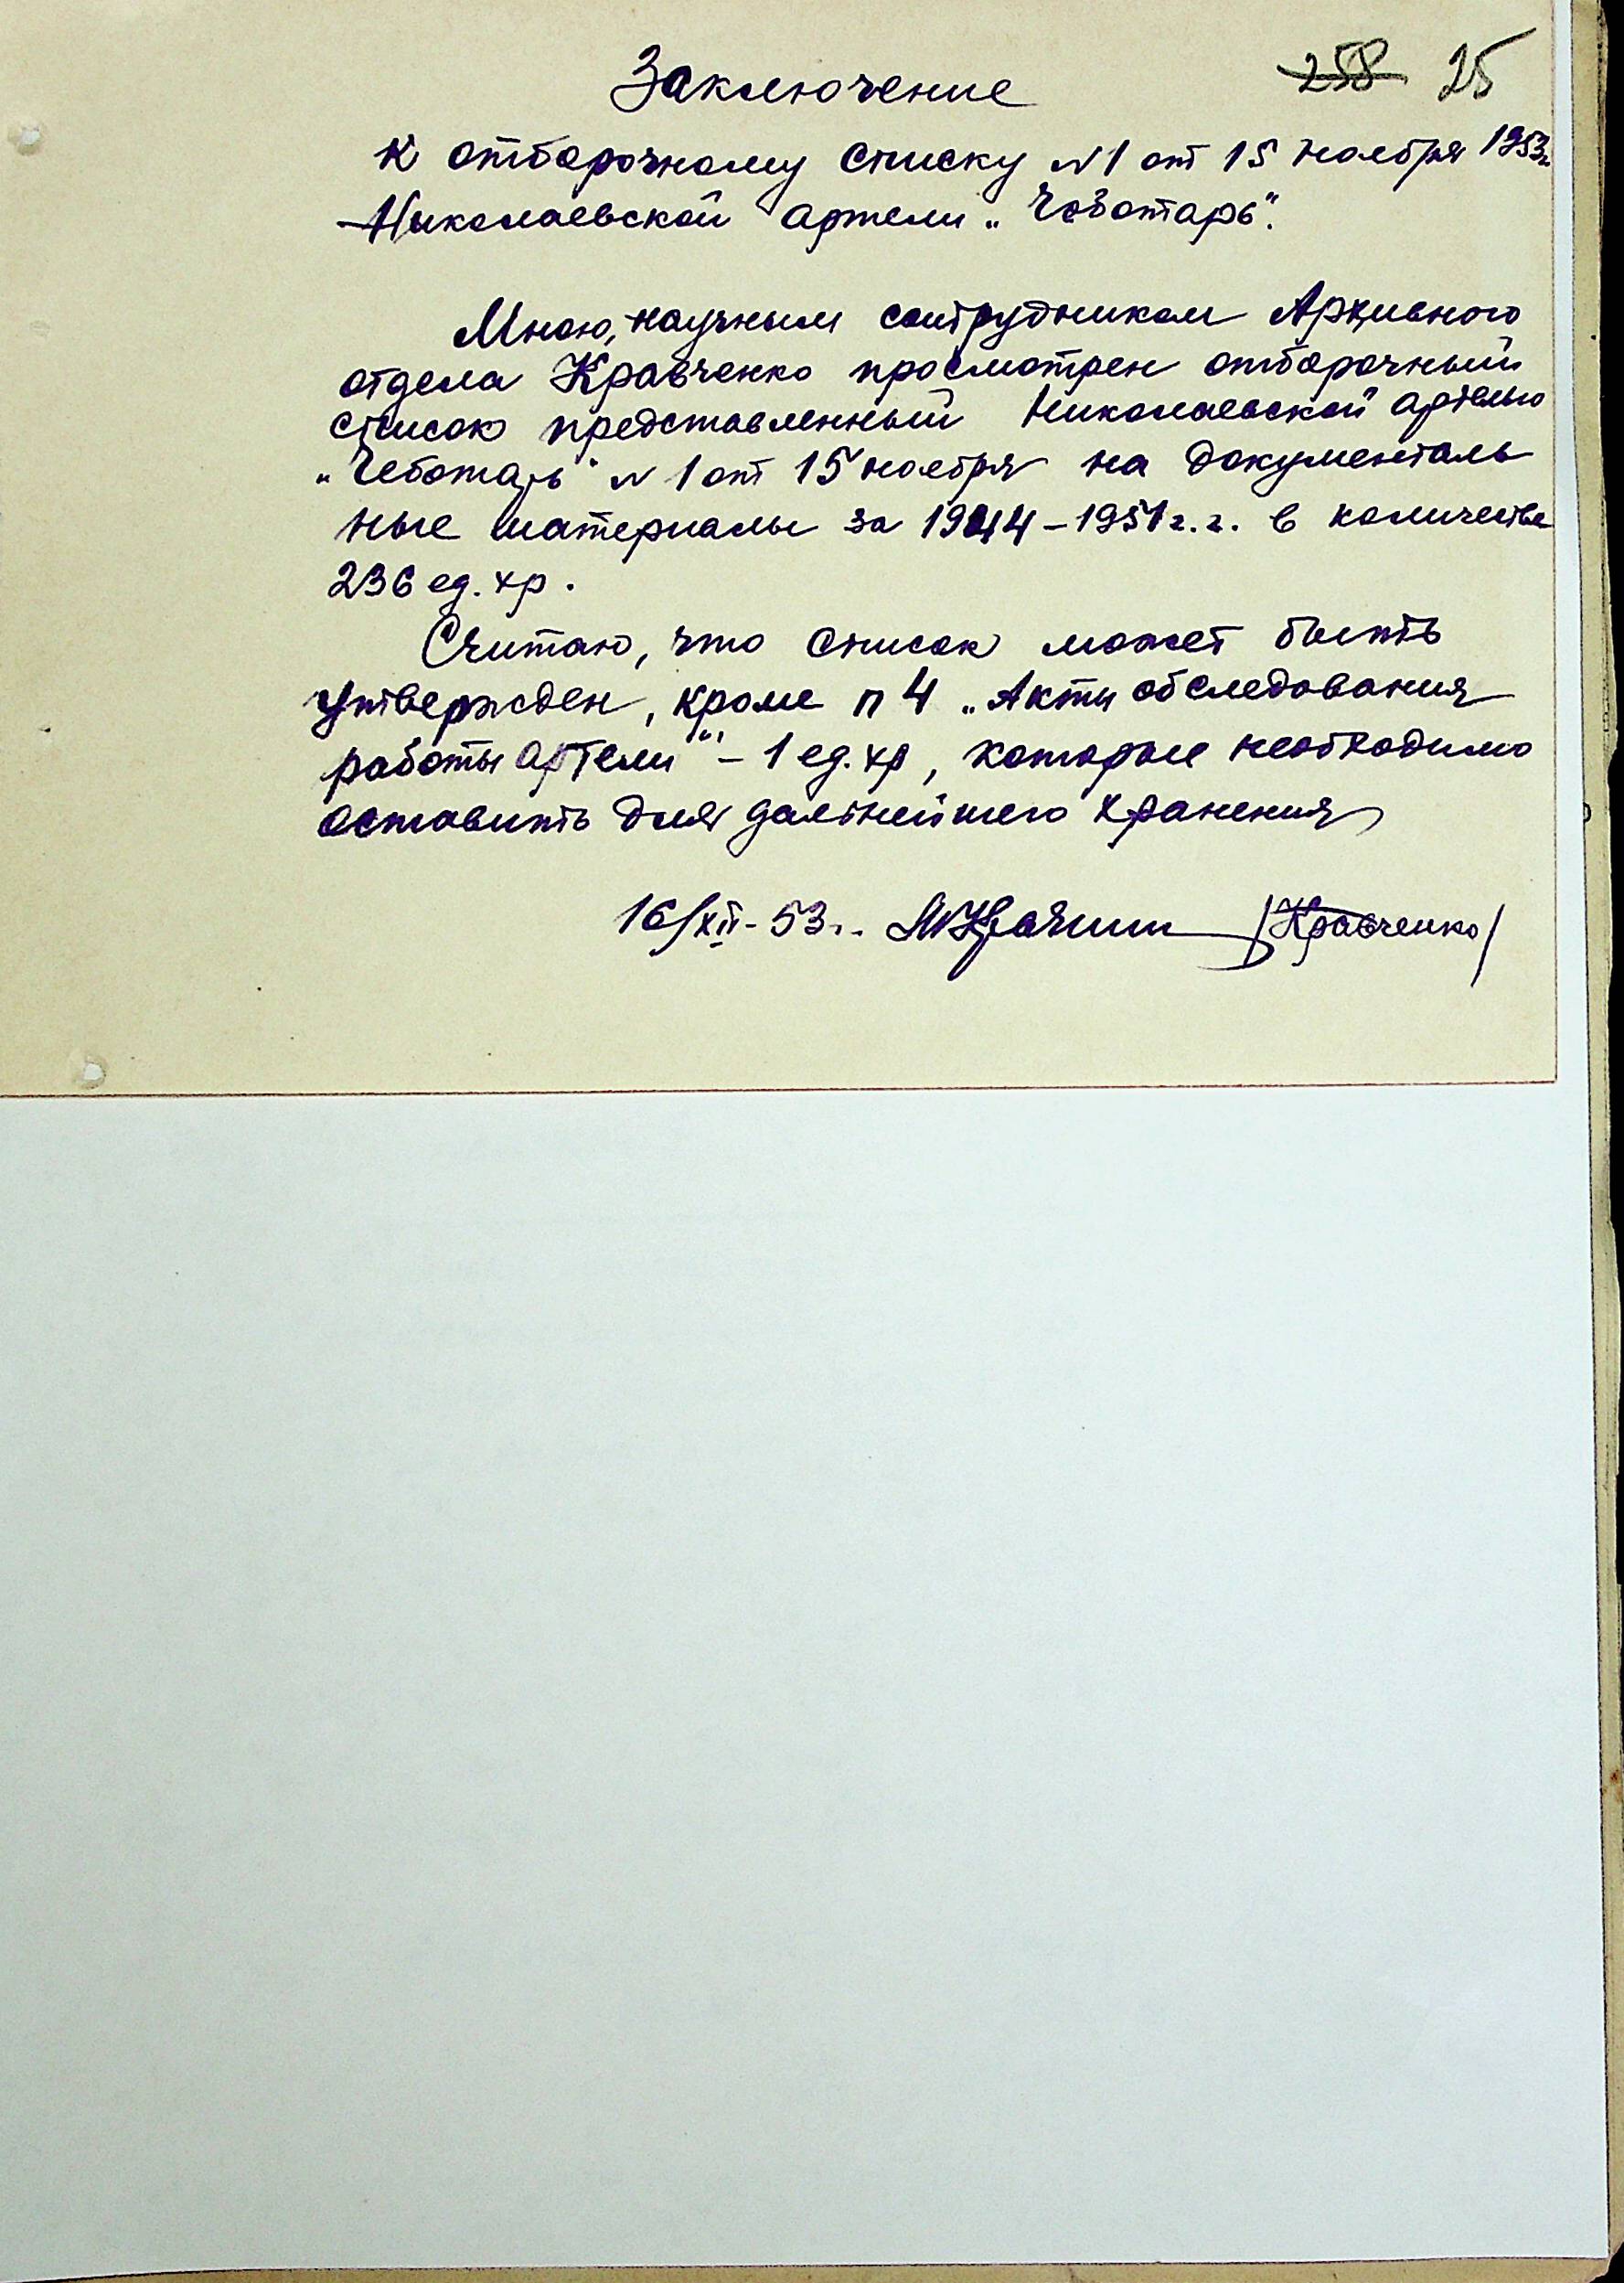 258 25
Заключение
к отборочному списку N1 от 15 ноября 1953г.
Николаевской артели „Чеботарь".
Мною, научным сотрудником Архивного
отдела Кравченко просмотрен отборочный
список представленный Николаевской артелью
„Чеботарь" N 1 от 15 ноября на документаль
ные материалы за 1944-1951г.г. в количестве
236 ед. хр.
Считаю, что список может быть
утвержден, кроме п 4 „Акты обследования
работы артели" - 1 ед. хр, которые необходимо
оставить для дальнейшего хранения
16/XII-53г. /Кравченко/